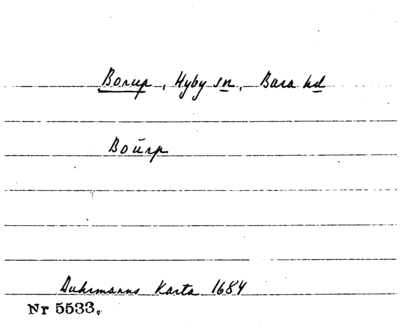 Borup, Hyby sn, Bara hd
Boürp
Buhrmanns Karta 1684
Nr 5533.